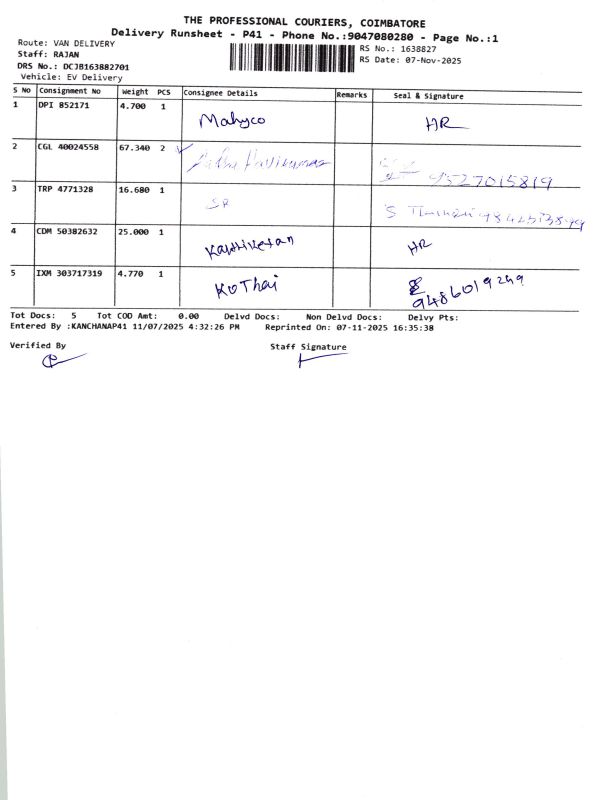 THE PROFESSIONAL COURIERS, COIMBATORE
Delivery Runsheet - P41 - Phone No.:9047080280 - Page No.:1
Route: VAN DELIVERY
Staff: RAJAN
DRS No.: DCJB163882701
Vehicle: EV Delivery
RS No.: 1638827
RS Date: 07-Nov-2025
S No Consignment No Weight PCS Consignee Details Remarks Seal & Signature
1 DPI 852171 4.700 1 Mahyco HR
2 CGL 40024558 67.340 2 9527015819
3 TRP 4771328 16.680 1 SR S
4 CDM 50382632 25.000 1 Karthikeyan HR
5 IXM 303717319 4.770 1 KoThai 9486019249
Tot Docs: 5 Tot COD Amt: 0.00 Delvd Docs: Non Delvd Docs: Delvy Pts:
Entered By :KANCHANAP41 11/07/2025 4:32:26 PM Reprinted On: 07-11-2025 16:35:38
Verified By Staff Signature